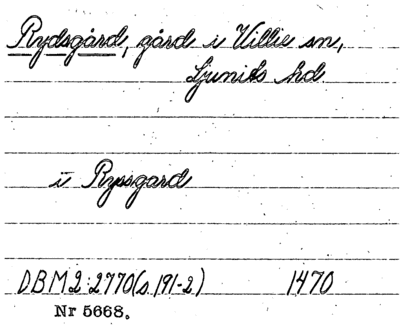 Rydsgård, gård i Villie sn,
Ljunits hd.
i Rypsgard
DBM2:2770(s 191-2) 1470
Nr 5668.